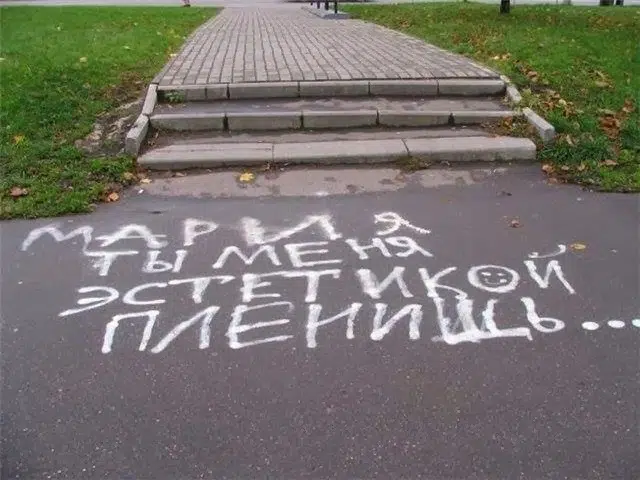 МАРИЯ
ТЫ МЕНЯ
ЭСТЕТИКОЙ
ПЛЕНИЩЬ...